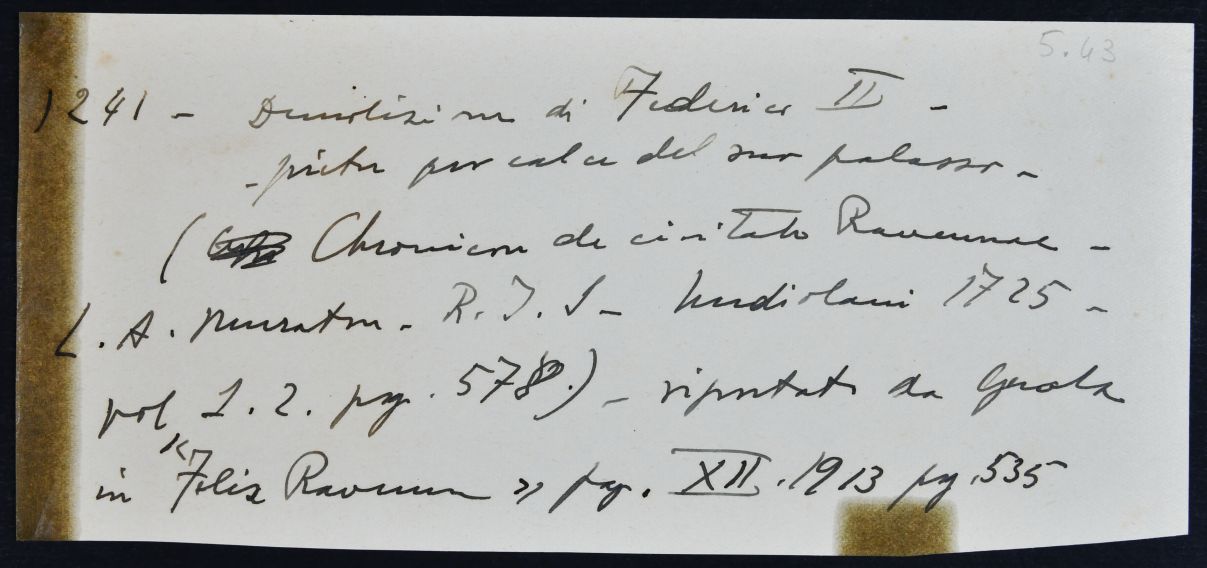 5.43
1241 - Demolizione di Federico II -
- pietre per calce del suo palazzo -
( Chronicon de civitate Ravennae -
L. A. Muratori - R. I. S - Mediolani 1725 -
vol 1. 2. pag. 578.) - riportato da Gerola
in "Felix Ravenna » fasc. XII. 1913 pg. 535